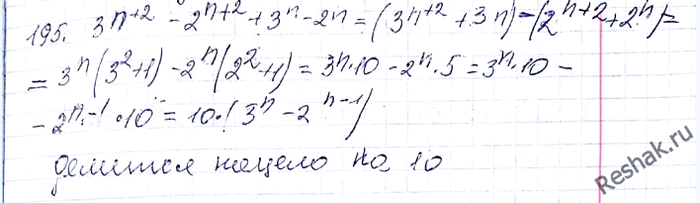 195. 3^{n+2} - 2^{n+2} + 3^n - 2^n = (3^{n+2} + 3^n) - (2^{n+2} + 2^n) =
= 3^n (3^2+1) - 2^n (2^2+1) = 3^n · 10 - 2^n · 5 = 3^n · 10 -
- 2^{n-1} · 10 = 10 · (3^n - 2^{n-1})
делится нацело на 10
Reshak.ru